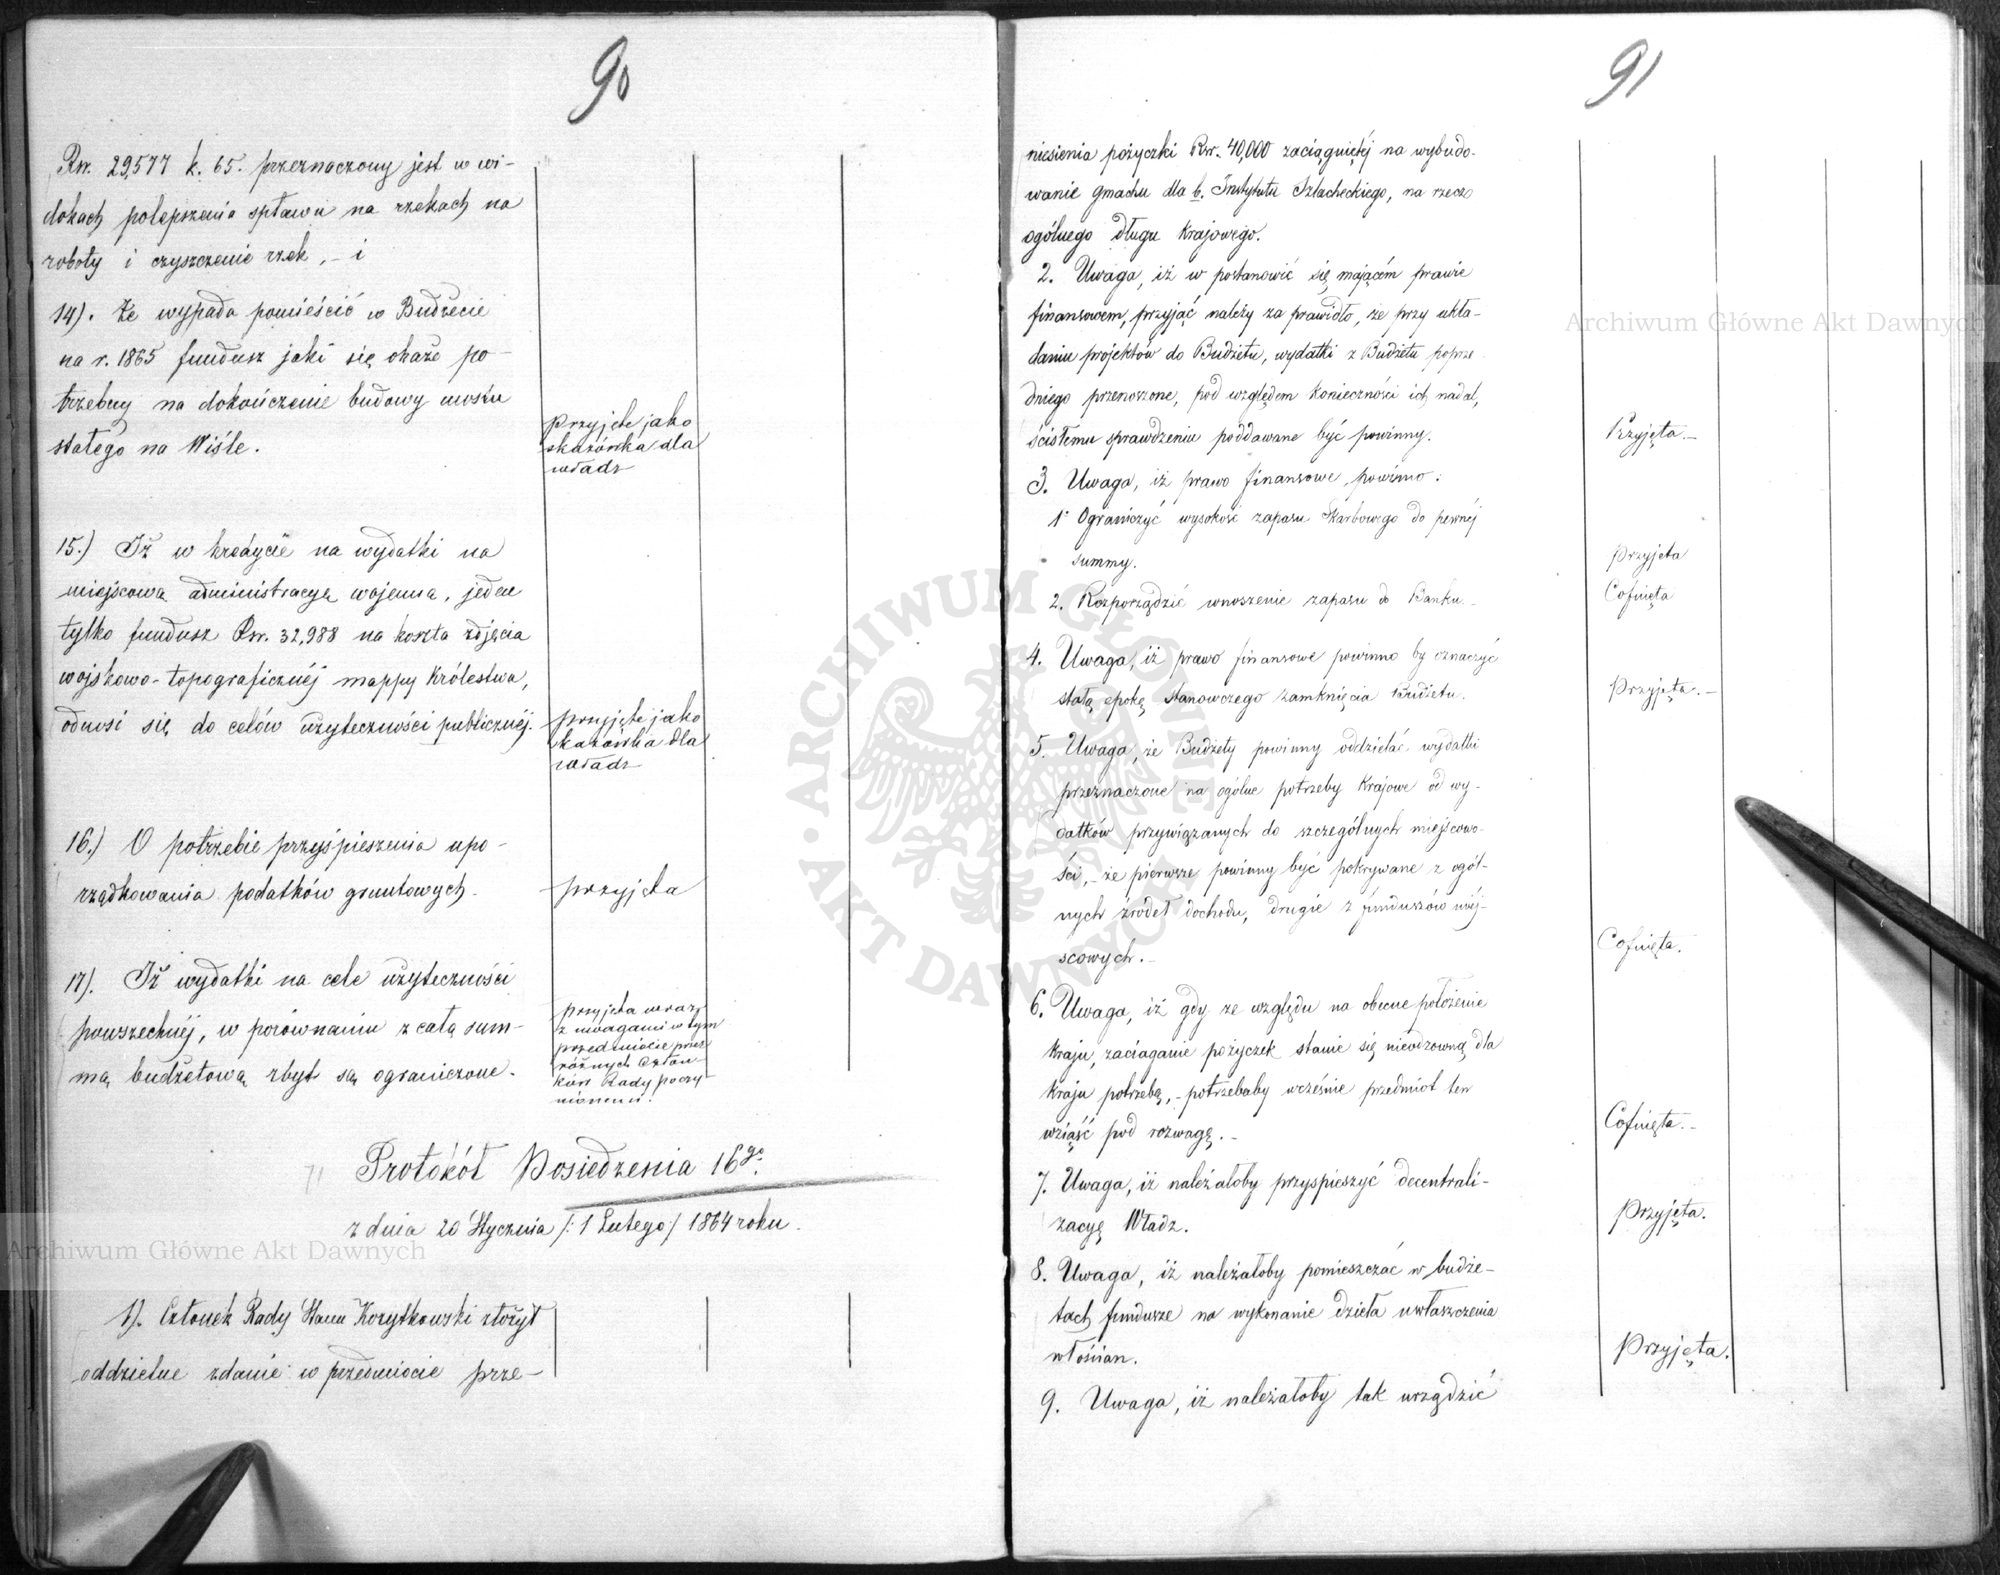 90
Rsr. 29,577 k. 65. przeznaczony jest w wi-
dokach polepszenia spławu na rzekach na
roboty i czyszczenie rzek, – i
14). Że wypada pomieścić w Budżecie
na r. 1865 fundusz jaki się okaże po-
trzebny na dokończenie budowy mostu
stałego na Wiśle.
przyjęte jako
skazówka dla
władz
15.) Iż w kredycie na wydatki na
miejscową administracyę wojenną, jeden
tylko fundusz Rsr. 32,988 na koszta zdjęcia
wojskowo-topograficznéj mappy Królestwa,
odnosi się do celów użyteczności publicznéj.
przyjęte jako
skazówka dla
władz
16.) O potrzebie przyśpieszenia upo-
rządkowania podatków gruntowych.
przyjęta
17). Iż wydatki na cele użyteczności
powszechnéj, w porównaniu z całą sum-
mą budżetową zbyt są ograniczone.
przyjęta wraz
z uwagami w tym
przedmiocie przez
różnych Człon-
ków Rady poczy-
nionemi.
71
Protokół Posiedzenia 16go.
z dnia 20 Stycznia /: 1 Lutego / 1864 roku.
1). Członek Rady Stanu Korytkowski złożył
oddzielne zdanie w przedmiocie prze-
91
niesienia pożyczki Rsr. 40,000 zaciągniętéj na wybudo-
wanie gmachu dla b. Instytutu Szlacheckiego, na rzecz
ogólnego długu Krajowego.
2. Uwaga, iż w postanowić się mającém prawie
finansowem, przyjąć należy za prawidło, że przy ukła-
daniu projektów do Budżetu, wydatki z Budżetu poprze-
dniego przenoszone, pod względem Konieczności ich nadal,
ścisłemu sprawdzeniu poddawane być powinny.
Przyjęta. –
3. Uwaga, iż prawo finansowe, powinno:
1. Ograniczyć wysokość zapasu Skarbowego do pewnéj
summy.
Przyjęta
2. Rozporządzić wnoszenie zapasu do Banku. –
Cofnięta
4. Uwaga, iż prawo finansowe powinno by oznaczyć
stałą epokę stanowczego zamknięcia Budżetu.
Przyjęta. –
5. Uwaga, że Budżety powinny oddzielać wydatki
przeznaczone na ogólne potrzeby Krajowe od wy-
datków przywiązanych do szczególnych miejscowo-
ści, – że pierwsze powinny być pokrywane z ogól-
nych źródeł dochodu, drugie z funduszów miej-
scowych. –
Cofnięta.
6. Uwaga, iż gdy ze względu na obecne położenie
Kraju, zaciąganie pożyczek stanie się nieodzowną dla
Kraju potrzebą, – potrzebaby wcześnie przedmiot ten
wziąść pod rozwagę. –
Cofnięta. –
7. Uwaga, iż należałoby przyspieszyć decentrali-
zacyę Władz.
Przyjęta.
8. Uwaga, iż należałoby pomieszczać w budże-
tach fundusze na wykonanie dzieła uwłaszczenia
włościan.
Przyjęta.
9. Uwaga, iż należałoby tak urządzić
Archiwum Główne Akt Dawnych
Archiwum Główne Akt Dawnych
ARCHIWUM GŁÓWNE AKT DAWNYCH